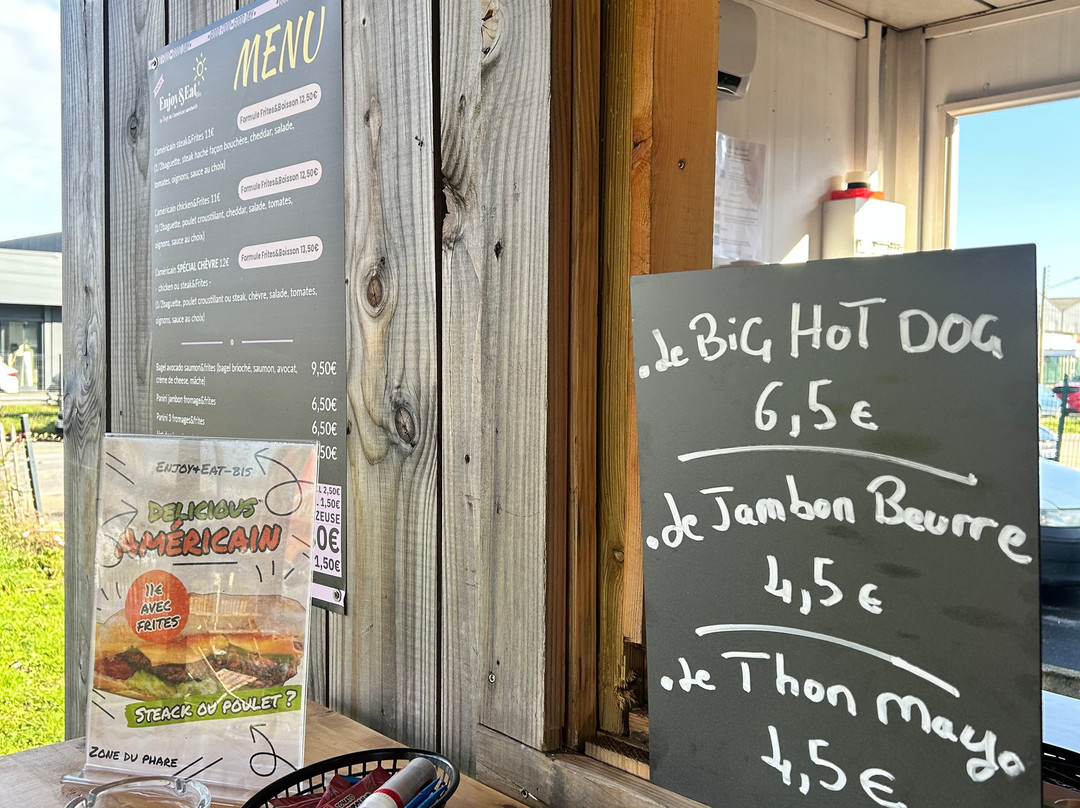 MENU
Enjoy&Eat
Formule Frites&Boisson 12,50€
L'américain steak&Frites 11€
(1/2baguette, steak haché façon bouchère, cheddar, salade,
tomates, oignons, sauce au choix)
Formule Frites&Boisson 12,50€
L'américain chicken&Frites 11€
(1/2baguette, poulet croustillant, cheddar, salade, tomates,
oignons, sauce au choix)
Formule Frites&Boisson 13,50€
L'américain SPÉCIAL CHÈVRE 12€
- chicken ou steak&Frites -
(1/2baguette, poulet croustillant ou steak, chèvre, salade, tomates,
oignons, sauce au choix)
Bagel avocado saumon&frites (bagel brioché, saumon, avocat, 9,50€
crème de cheese, mâche)
Panini jambon fromage&frites 6,50€
Panini 3 fromages&frites 6,50€
50€
L 2,50€
1,50€
ZEUSE
0€
1,50€
ENJOY&EAT-BIS
DELICIOUS
AMÉRICAIN
11€
AVEC
FRITES
STEACK OU POULET ?
ZONE DU PHARE
.Le BiG HoT DOG
6,5€
.Le Jambon Beurre
4,5€
.Le Thon mayo
4,5€